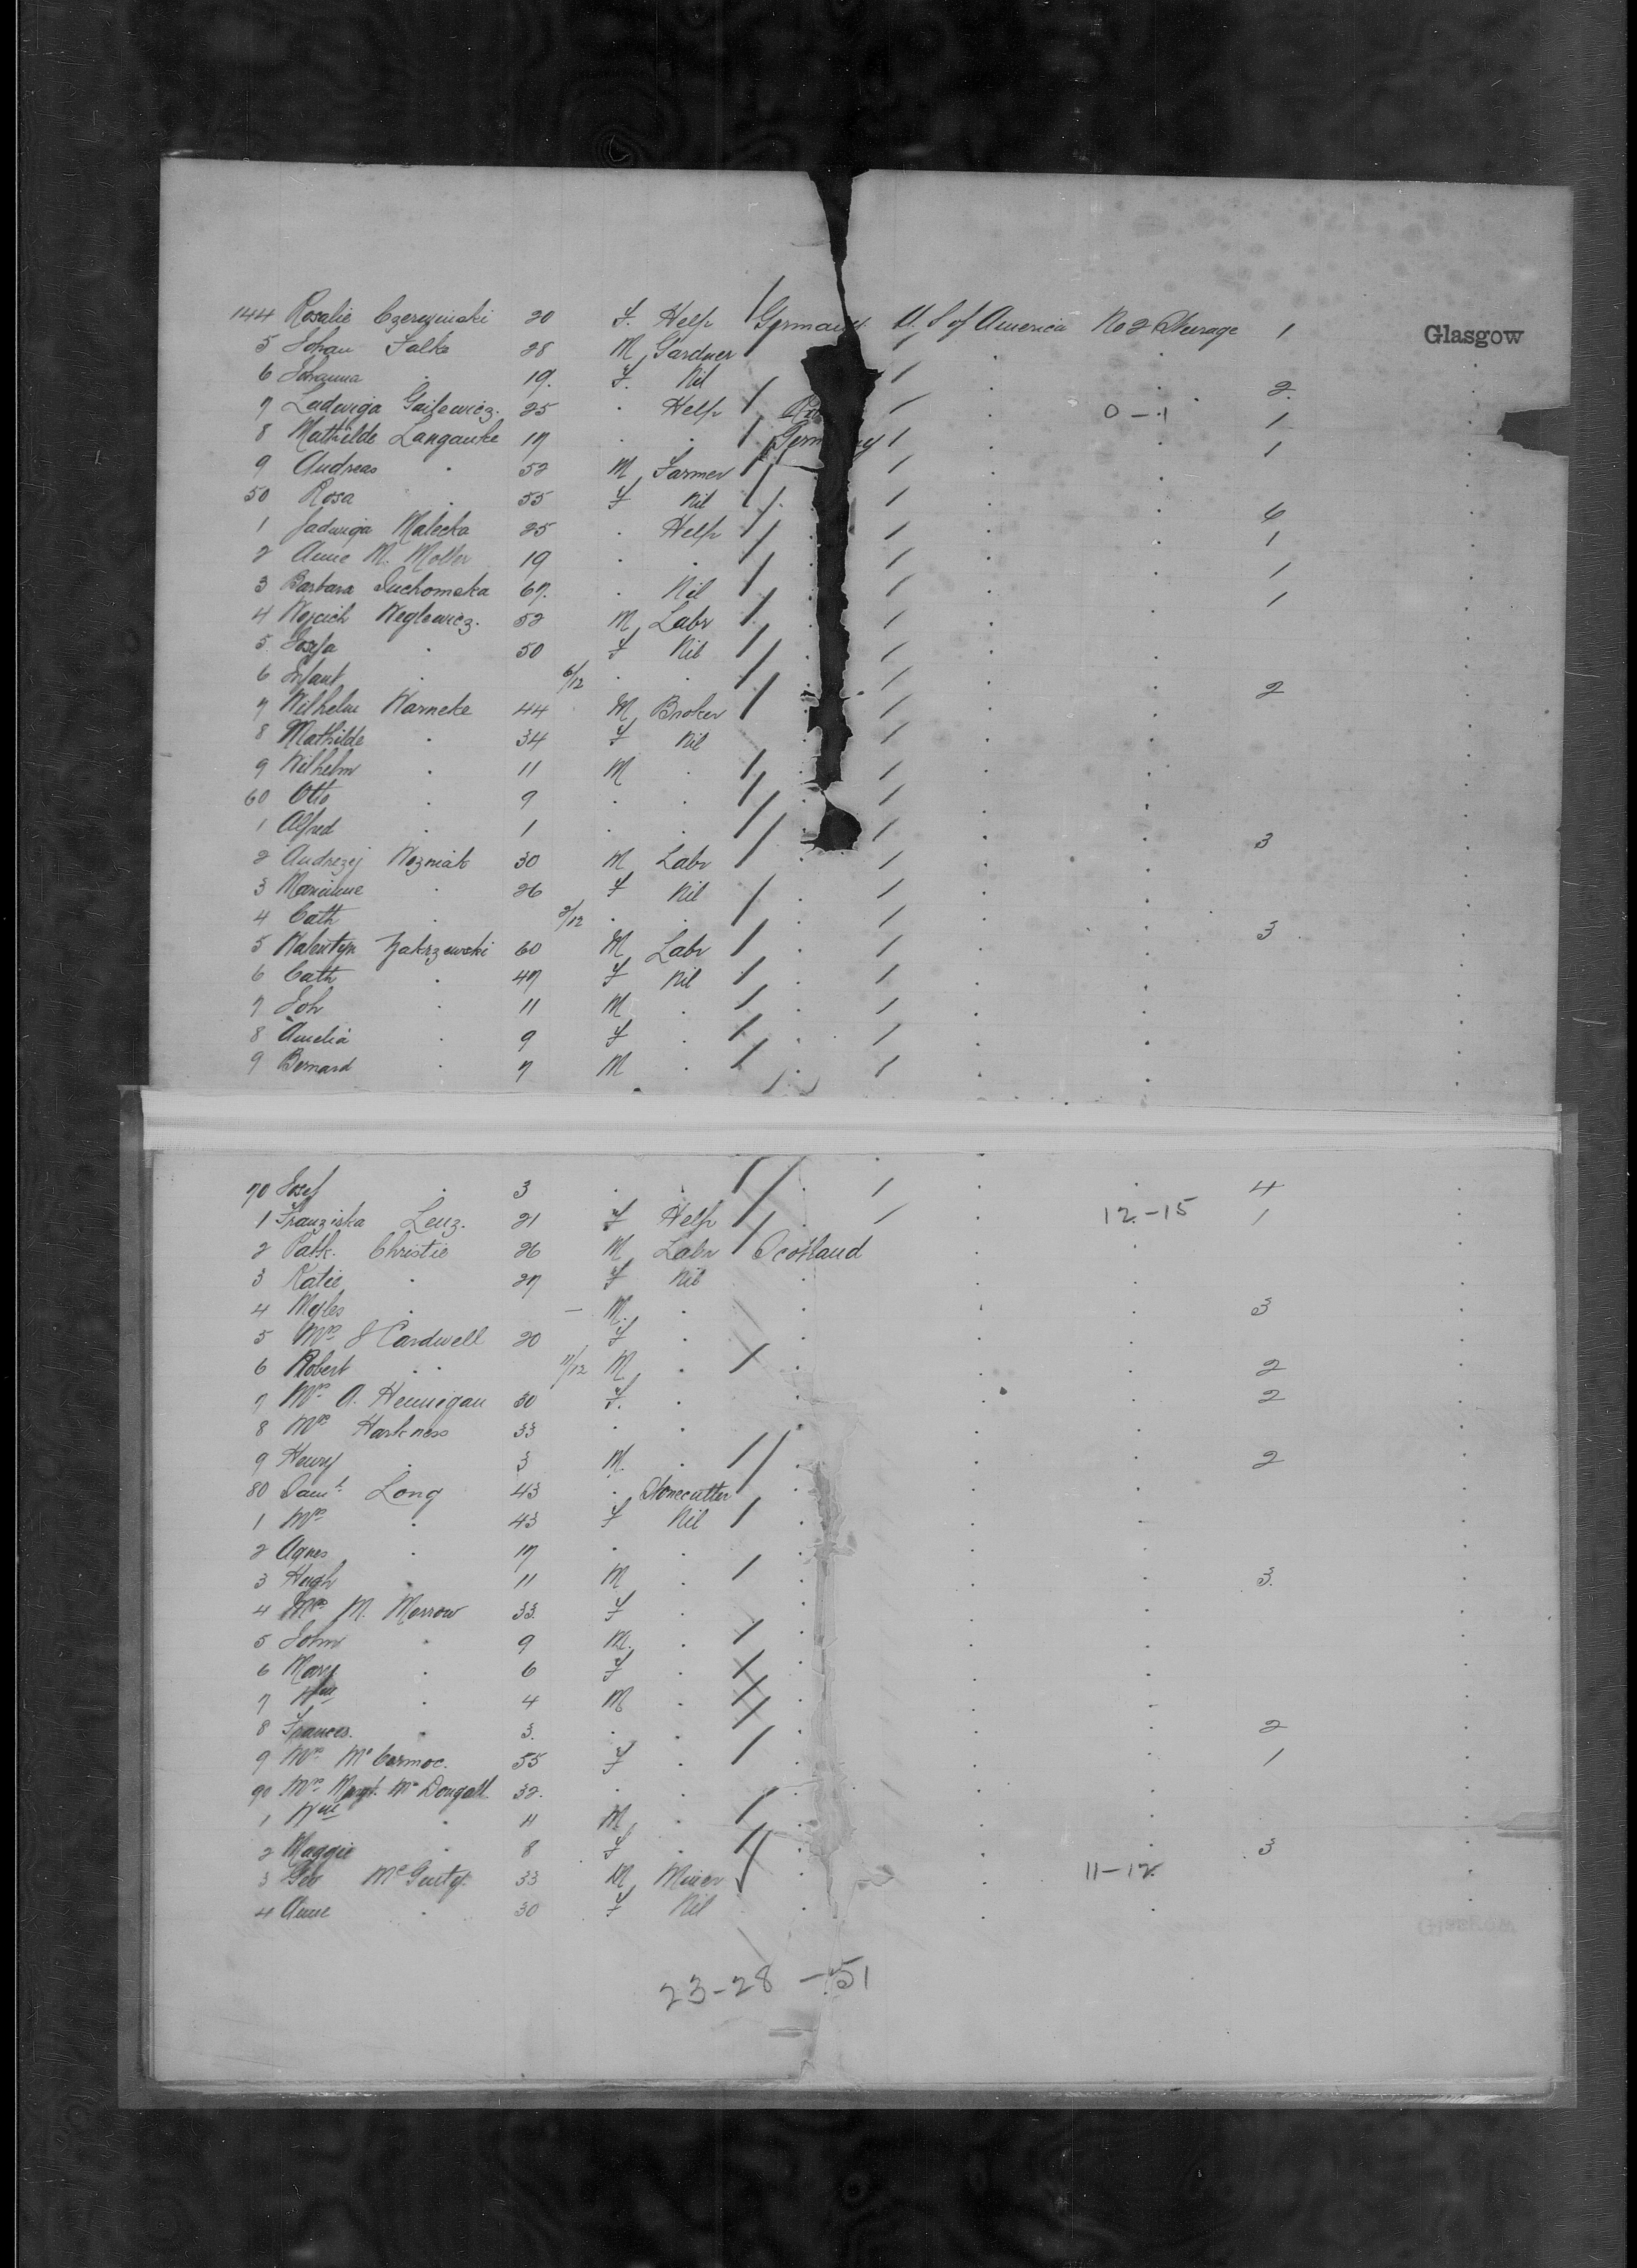 144 Rosalie Czerezinski 20 F. Help Germany. U. S of America No 2 Steerage 1 Glasgow
5 Johan Falke 28 M Gardner
6 Johanna 19. F. Nil 2
7 Ladwiga 25 Help 0-1 1
8 Mathilde Langanke 17 Germany 1
9 Andreas 52 M Farmer
50 Rosa 55 F Nil
1 Jadwiga Malecka 25 Help 1
2 Anne M. Moller 19 1
3 Barbara Suchomska 67. Nil 1
4 Wojcich Weglewicz. 52 M Labr
5 Josefa 50 F Nil
6 Infant 6/12 2
7 Wilhelm Warneke 44 M Broker
8 Mathilde 34 F Nil
9 Wilhelm 11 M
60 Otto 9
1 Alfred 1 3
2 Andrezej Wozniak 30 M Labr
3 Marianne 26 F Nil
4 Cath 2/12 3
5 Walentyn Zakrzewski 60 M Labr
6 Cath 47 F Nil
7 Joh 11 M
8 Amelia 9 F
9 Bernard 7 M
70 Josef 3 4
1 Franziska Lenz. 21 F Help 12-15 1
2 Patk. Christie 26 M Labr Scotland
3 Katie 27 F Nil
4 Myles - M. 3
5 Mrs J Cardwell 20 F
6 Robert 11/12 M 2
7 Mrs A. Hennigan 30 F. 2
8 Mrs Harkness 33
9 Henry 3 M. 2
80 Saml Long 43 Stonecutter
1 Mrs 43 F Nil
2 Agnes 17
3 Hugh 11 M 3.
4 Mrs M. Morrow 33. F
5 John 9 M.
6 Mary 6 F
7 Wm 4 M
8 Frances. 3. 2
9 Mrs McCormoc. 55 F 1
90 Mrs Margt. McDougall. 32.
1 Wm 11 M
2 Maggie 8 F 3
3 Geo McGinty. 33 M Miner 11-12
4 Anne 30 F Nil
23-28-51